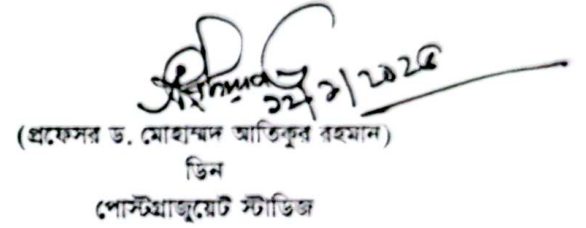 (প্রফেসর ড. মোহাম্মদ আতিকুর রহমান)
ডিন
পোস্টগ্রাজুয়েট স্টাডিজ